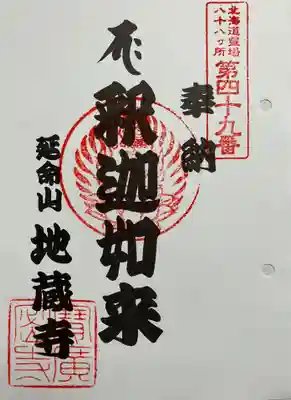 北海道霊場
八十八ヶ所
第四十九番
奉納
釈迦如来
延命山 地蔵寺